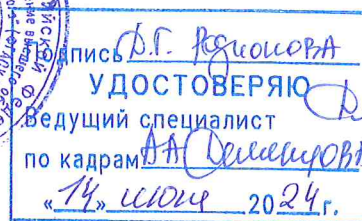 Подпись Д.Г. Родионова
УДОСТОВЕРЯЮ
Ведущий специалист
по кадрам
«14» июня 2024 г.